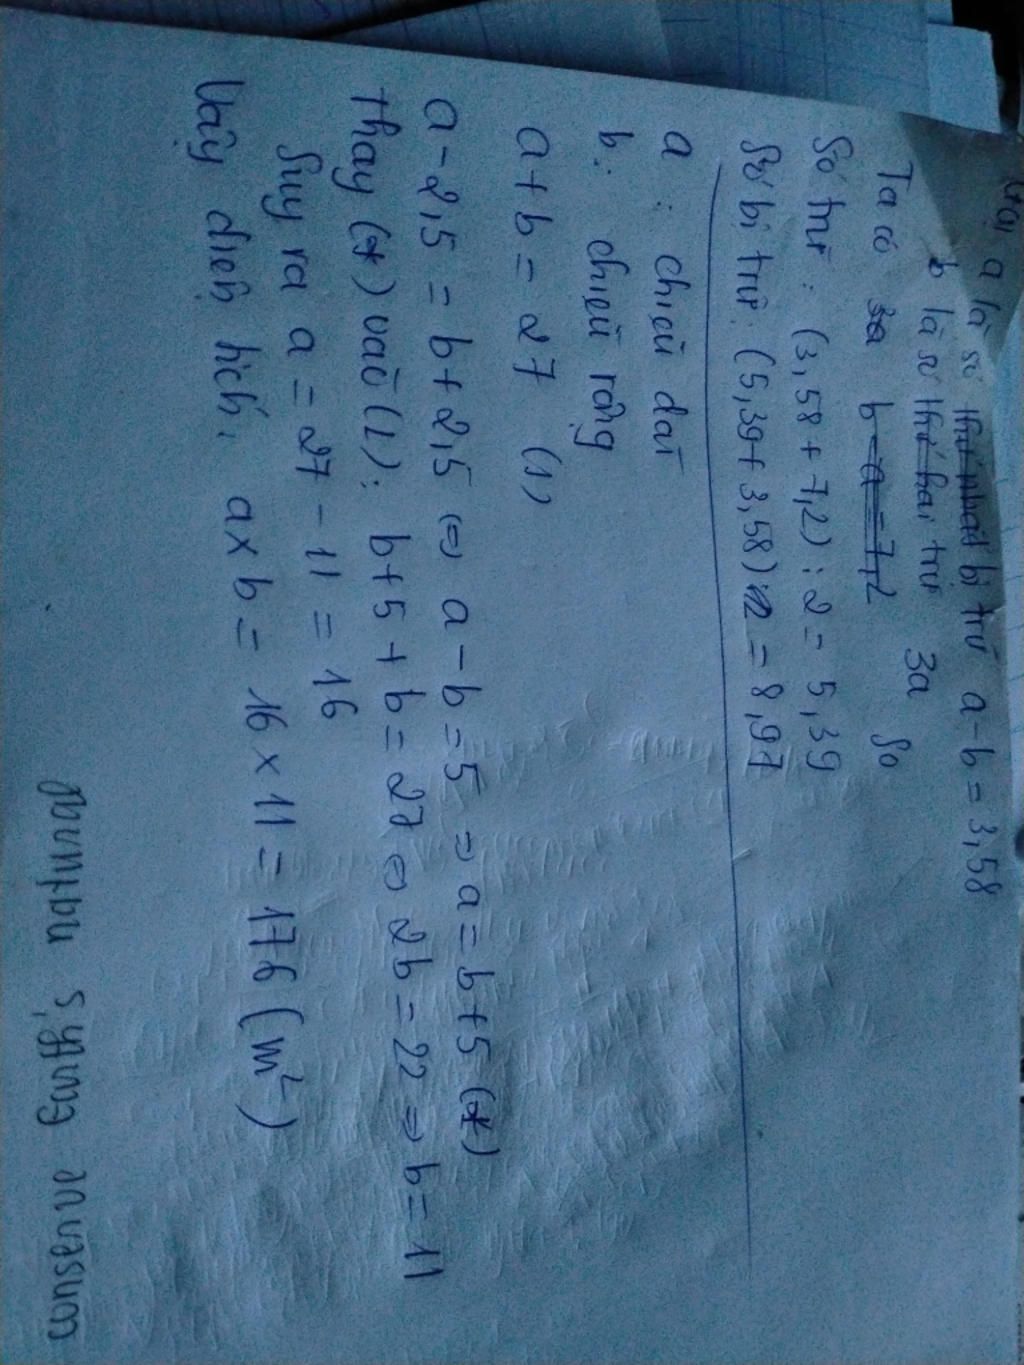 Gọi a là số thứ nhất bị trừ a-b = 3,58
b là số thứ hai trừ 3a
Ta có 3a b-a=7,2 So
Số trừ : (3,58 + 7,2) : 2 = 5,39
Số bị trừ: (5,39 + 3,58) = 8,97
a : chiều dài
b : chiều rộng
a + b = 27 (1)
a - 2,5 = b + 2,5 ⇔ a - b = 5 ⇒ a = b + 5 (*)
thay (*) vào (1) : b + 5 + b = 27 ⇔ 2b = 22 ⇒ b = 11
Suy ra a = 27 - 11 = 16
Vậy diện tích : a x b = 16 x 11 = 176 (m²)
conserve Earth's natural